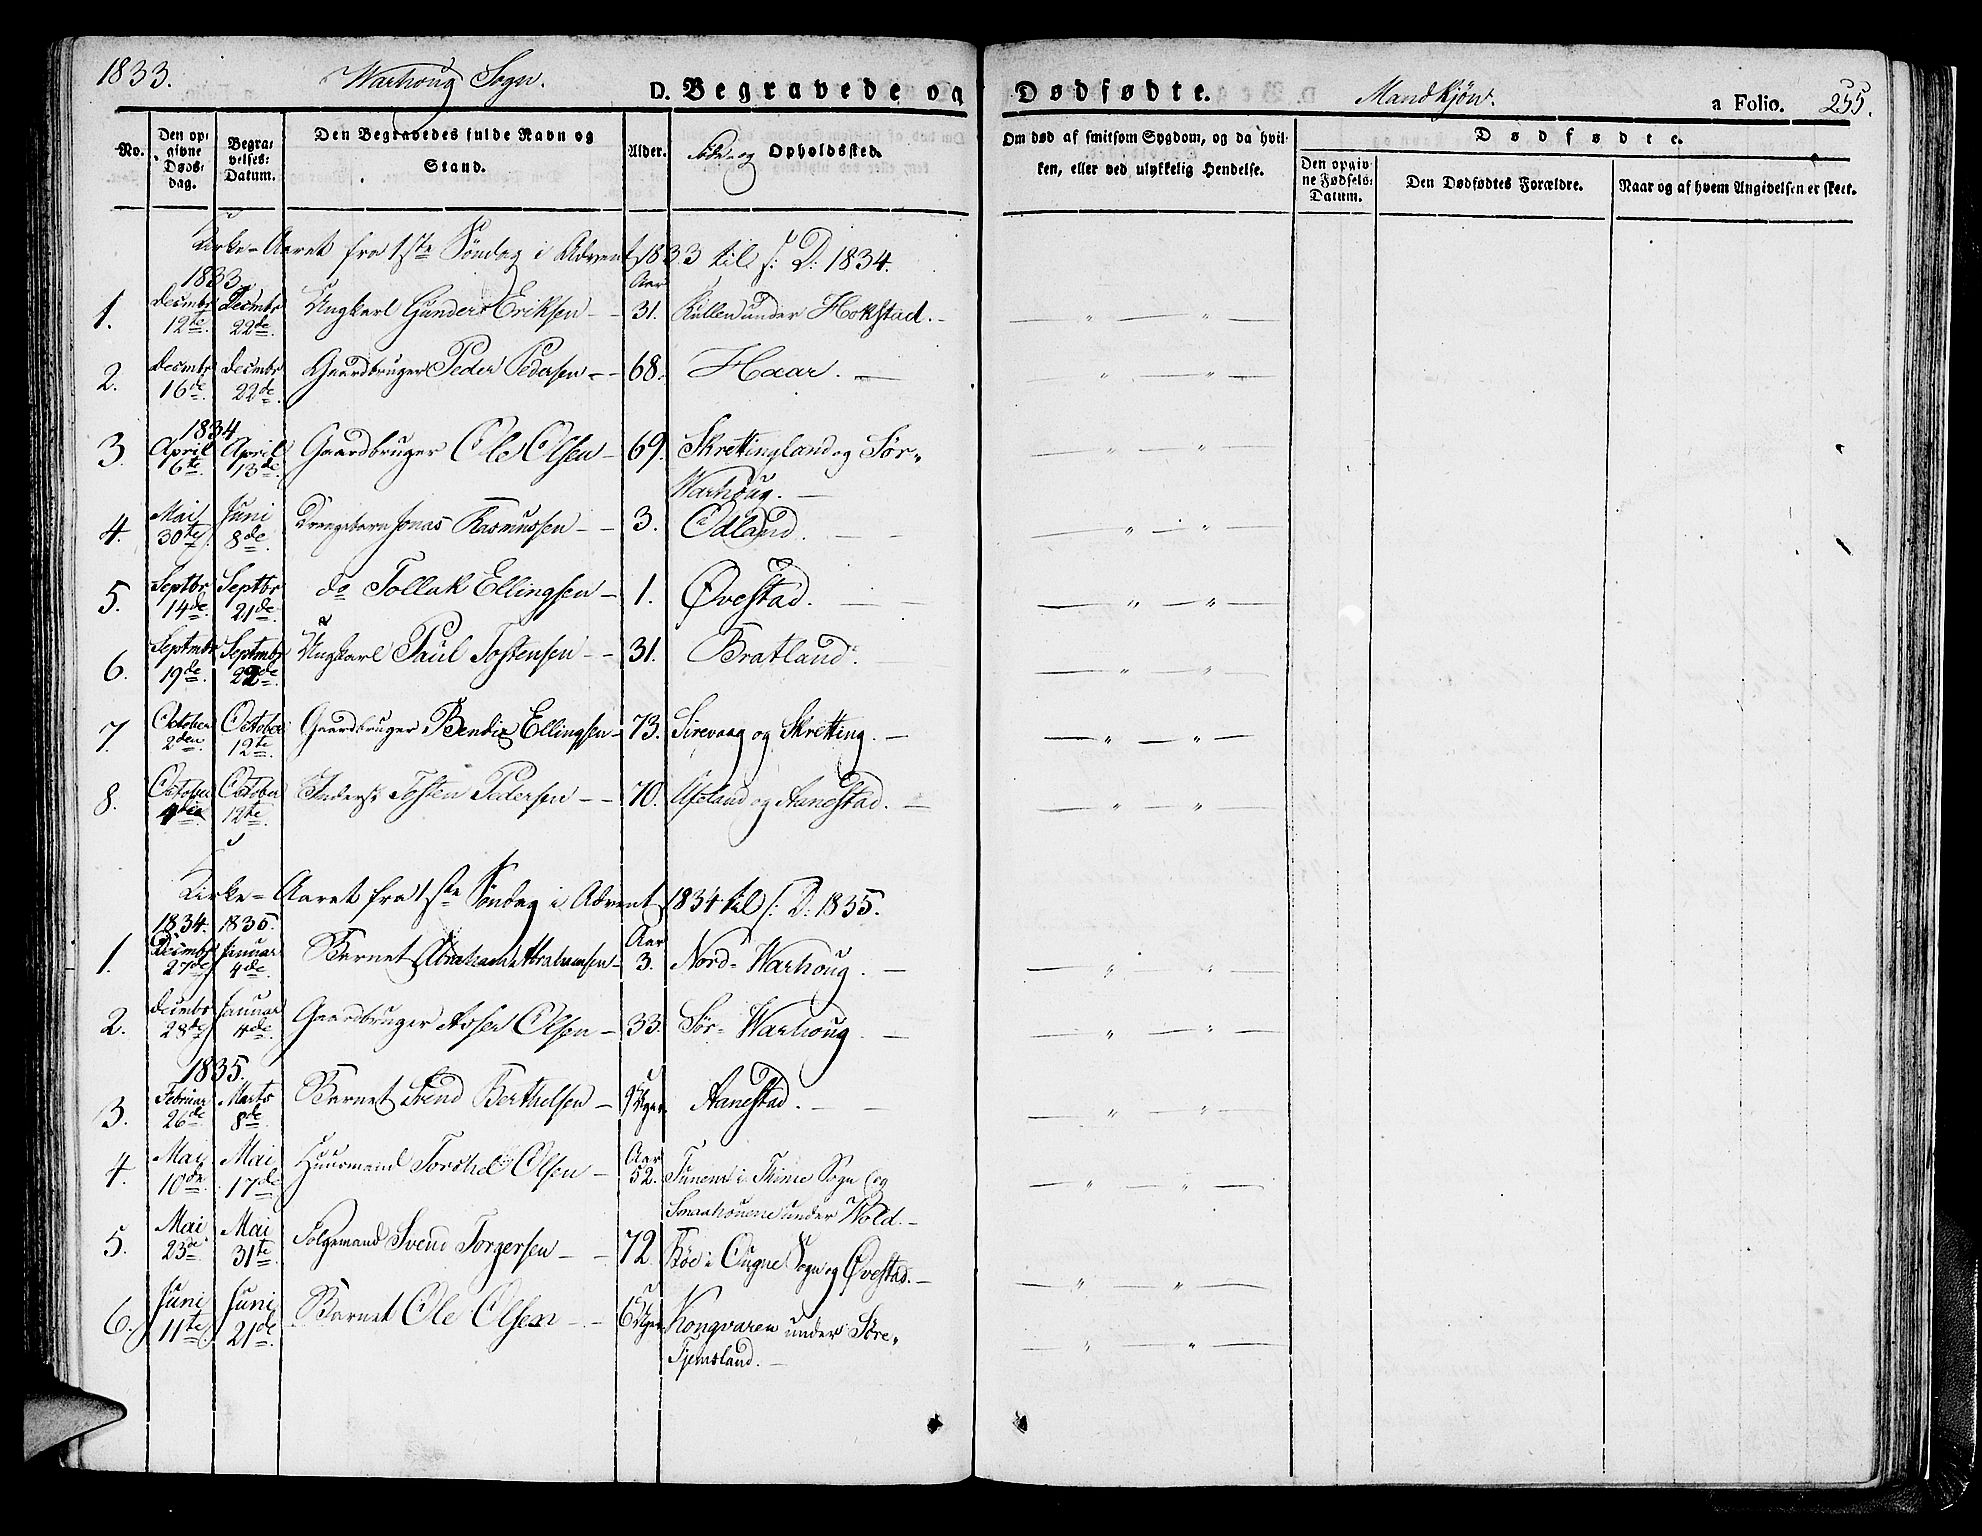 1833. Warhoug Sogn. D. Begravede og Dødfødte. Mandkjøn. a Folio. 255.
No. Den opgivne Døds-dag. Begravelses-Datum. Den Begravedes fulde Navn og Stand. Alder. Føde- og Opholdssted. Om død af smitsom Sygdom, og da hvilken, eller ved ulykkelig Hendelse. Dødfødte.
Den opgivne Fødsels-Datum. Den Dødfødtes Forældre. Naar og af hvem Angivelsen er skeet.
Kirke-Aaret fra 1ste Søndag i Advent 1833 til s: D: 1834.
1833 Aar
1. Decmbr 12te Decmbr 22de Ungkarl Gunder Eriksen 31. Kullen under Hokstad.
2. Decmbr 16de Decmbr 22de Gaardbruger Peder Pedersen 68. Haar.
1834
3. April 6te April 13de Gaardbruger Ole Olsen 69. Skrettingland og Sør-
Warhoug.
4. Mai 30te Juni 8de Drengebarn Jonas Rasmussen 3. Odland.
5. Septbr 14de Septbr 21de do Tollak Ellingsen 1. Øvestad.
6. Septmbr 19de Septmbr 22de Ungkarl Paul Tostensen 31. Bratland.
7. October 2den October 12te Gaardbruger Bendix Ellingsen 73. Sirevaag og Skretting.
8. October 4de October 12te Inderst Tosten Pedersen 70. Ueland og Aanestad.
Kirke-Aaret fra 1ste Søndag i Advent 1834 til s: D: 1835.
1834. 1835. Aar
1. Decmbr 27de Januar 4de Barnet Abraham Abrahamsen 3. Nord-Warhoug.
2. Decmbr 28de Januar 4de Gaardbruger Asser Olsen 33. Sør-Warhoug.
1835.
3. Februar 26de Marts 8de Barnet Svend Berthelsen 9 Uger Aanestad.
Aar
4. Mai 10de Mai 17de Huusmand Torchel Olsen 52. Tunem i Thime Sogn og
Smaahouene under Wold.
5. Mai 23de Mai 31te Følgemand Svend Torgersen 72 Bøe i Ougne Sogn og Øvestad.
6. Juni 11te Juni 21de Barnet Ole Olsen 6 Uger Kongvaren under Søre-
Tjemsland.